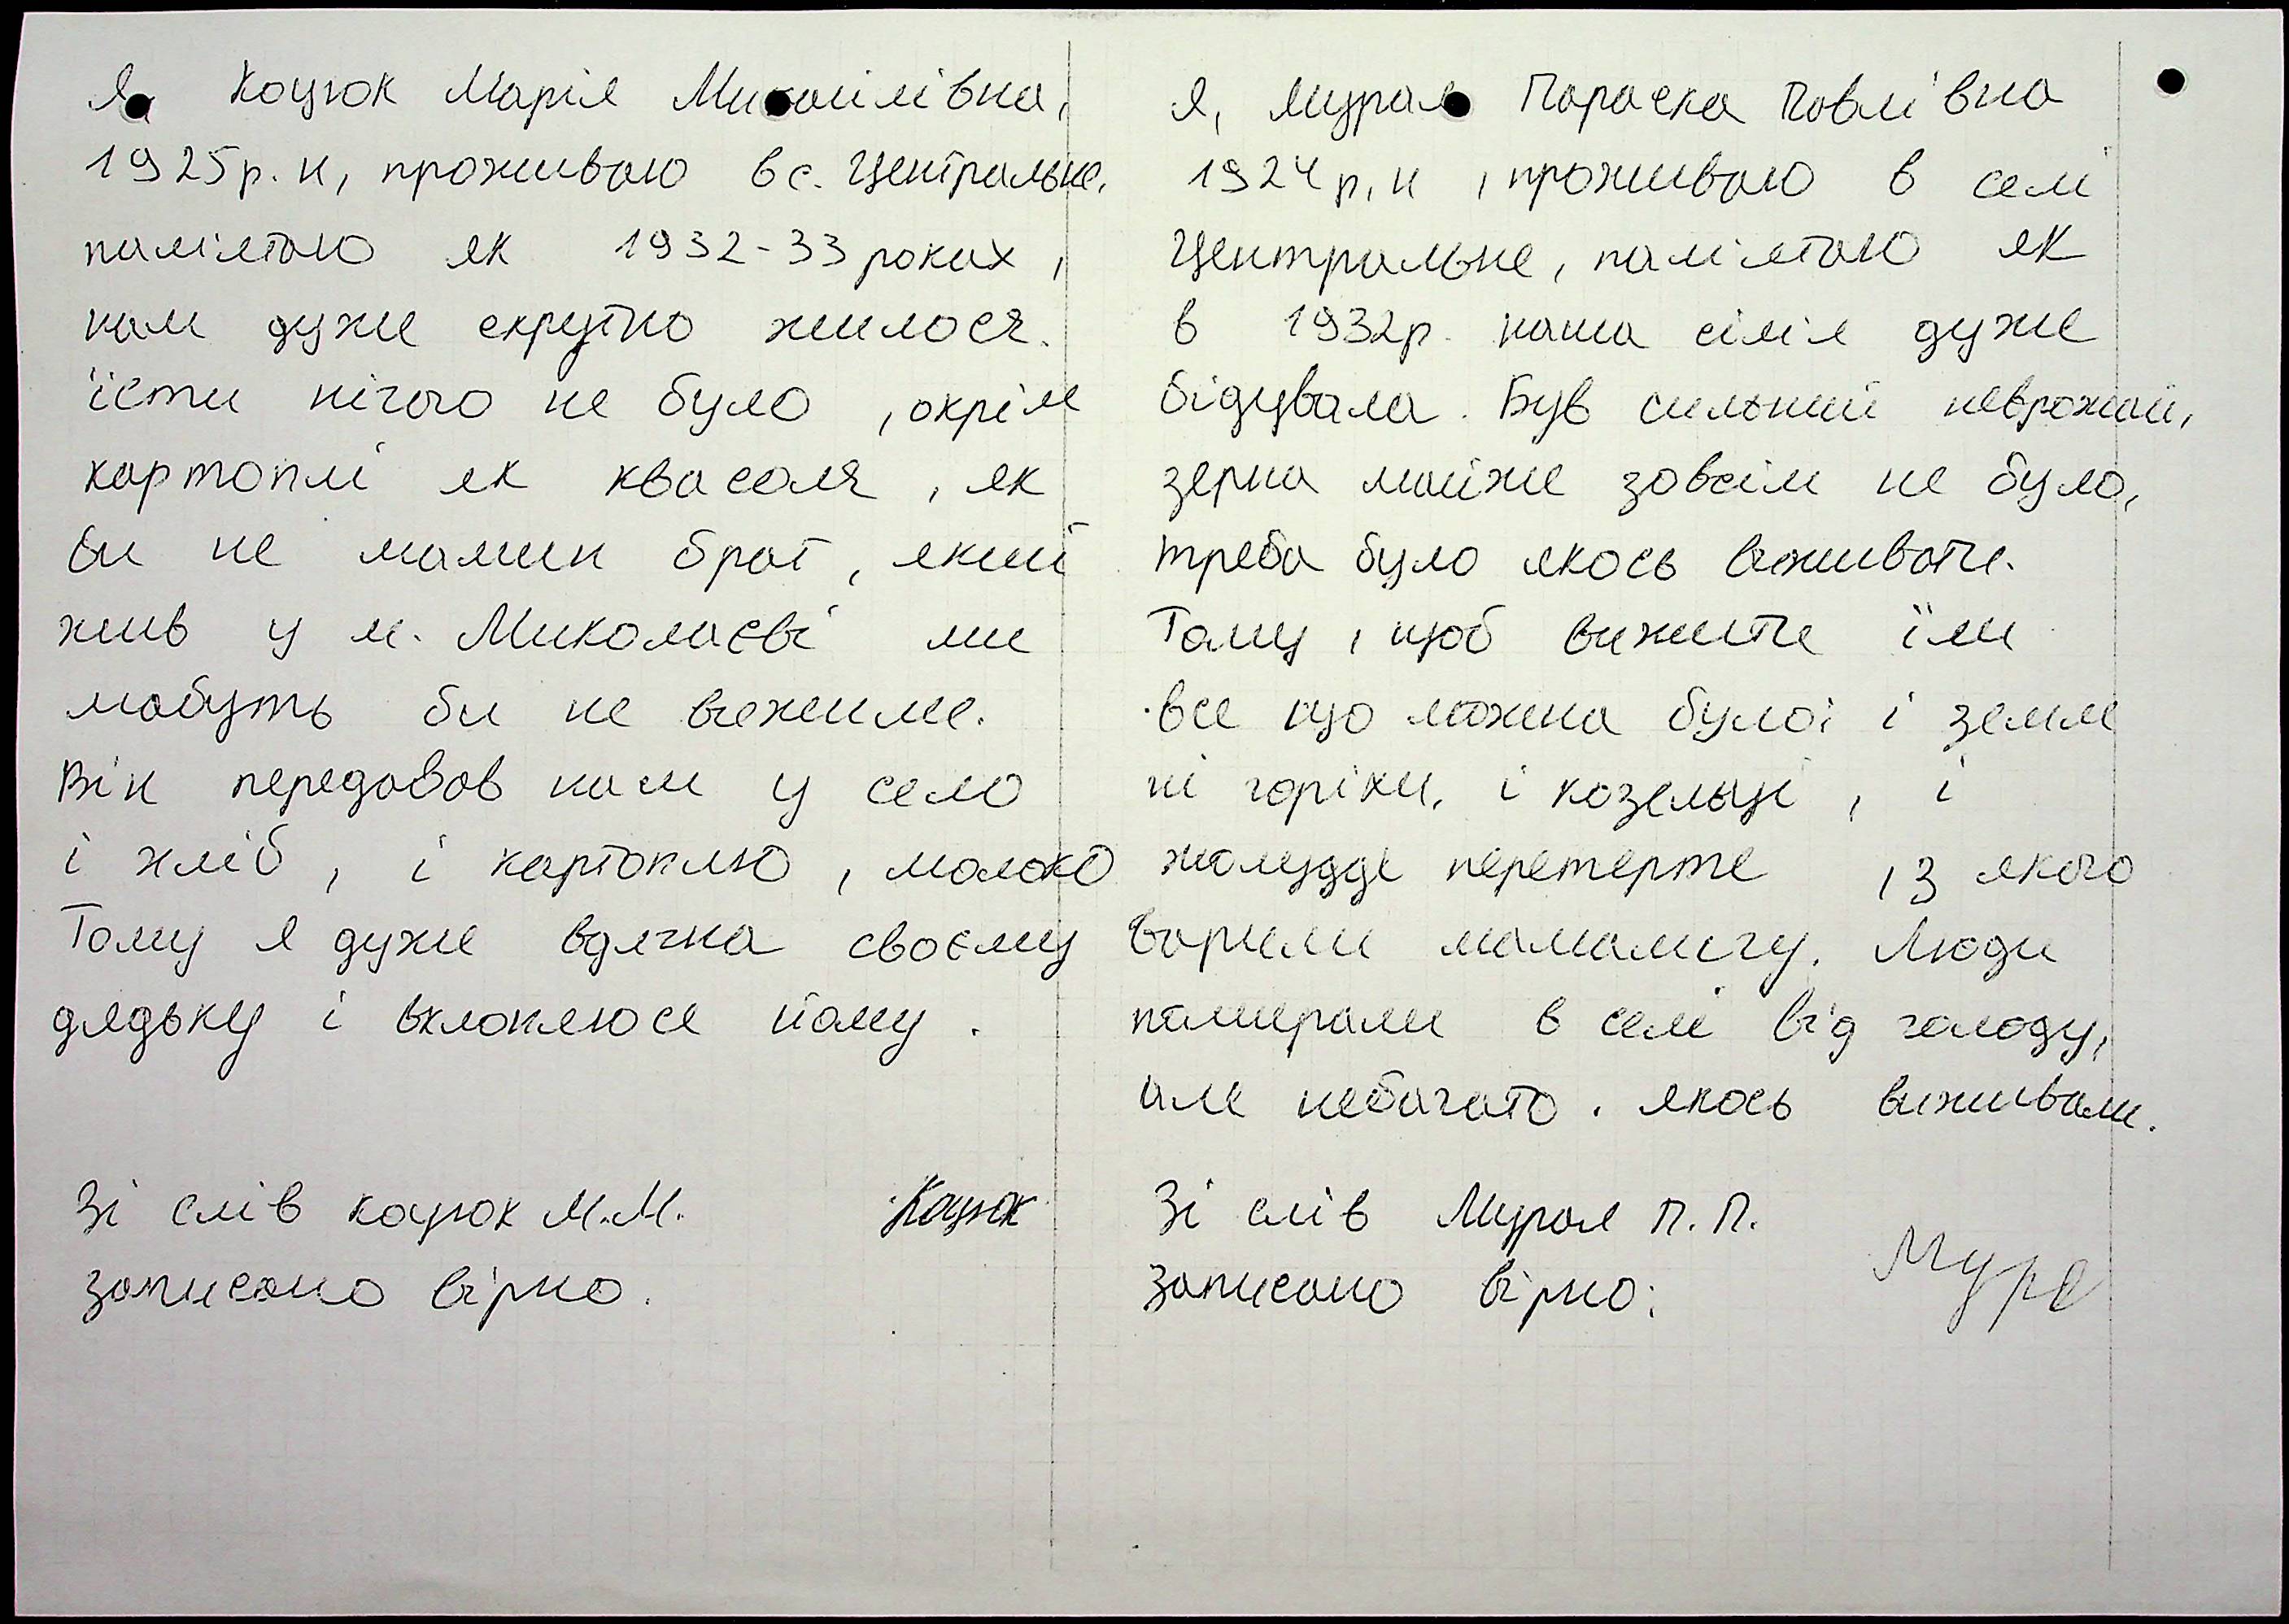 Я, Коцюк Марія Михайлівна,
1925р.н, проживаю в с. Центральне.
памілтаю як 1932-33 роках,
нам дуже скрутно жилося.
їсти нічого не було, окрім
картоплі як квасоля, як
би не мамин брат, який
жив у м. Миколаєві ми
мабуть би не вижили.
Він передавав нам у село
і хліб, і картоплю, молоко
Тому я дуже вдячна своєму
дядьку і вклоняюся йому.
Зі слів Коцюк М.М. Коцюк
записано вірно.
Я, Мурая Параска Павлівна
1924р.н, проживаю в селі
Центральне, памілтаю як
в 1932р. наша сімія дуже
бідувала. Був сильний неврожай,
зерна майже зовсім не було,
треба було якось виживати.
Тому, щоб вижити їли
все що можна було: і земля
ні горіхи, і козельці, і
жолудді перетерте, із якого
варили мамалигу. Люди
помирали в селі від голоду,
але небагато. якось виживали.
Зі слів Мурая П.П.
записано вірно: Мура